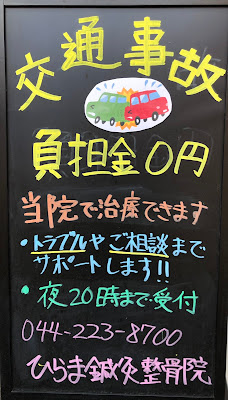 交通事故
負担金0円
当院で治療できます
・トラブルやご相談まで
サポートします!!
・夜20時まで受付
044-223-8700
ひらま鍼灸整骨院